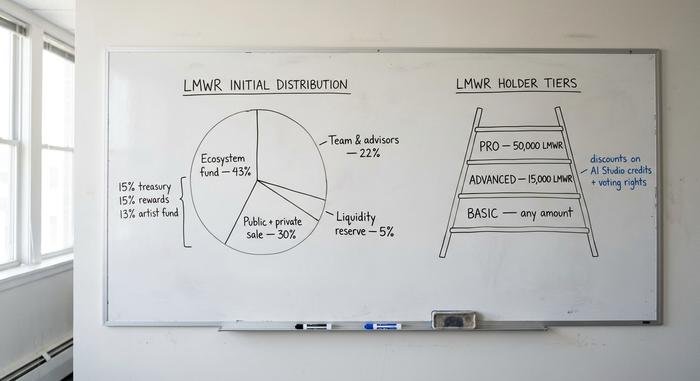 LMWR INITIAL DISTRIBUTION
Ecosystem
fund — 43%
Team & advisors
— 22%
15% treasury
15% rewards
13% artist fund
Public + private
sale — 30%
Liquidity
reserve — 5%
LMWR HOLDER TIERS
PRO — 50,000 LMWR
ADVANCED — 15,000 LMWR
BASIC — any amount
discounts on
AI Studio credits
+ voting rights